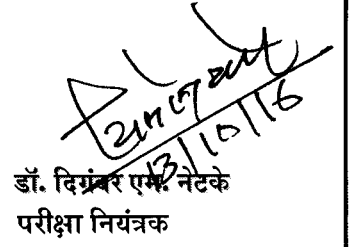 13/10/16
डॉ. दिगंबर एम. नेटके
परीक्षा नियंत्रक